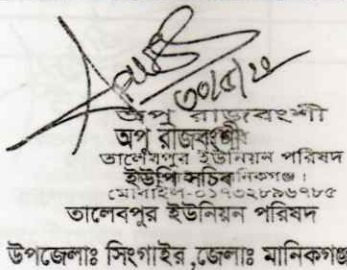 ৩০/৫/২৪
অপু রাজবংশী
অপু রাজবংশী
তালেবপুর ইউনিয়ন পরিষদ
ইউপি সচিব নিকগঞ্জ।
মোবাইল-০১৭৩২৮৯৬৭৮৫
তালেবপুর ইউনিয়ন পরিষদ
উপজেলাঃ সিংগাইর,জেলাঃ মানিকগঞ্জ